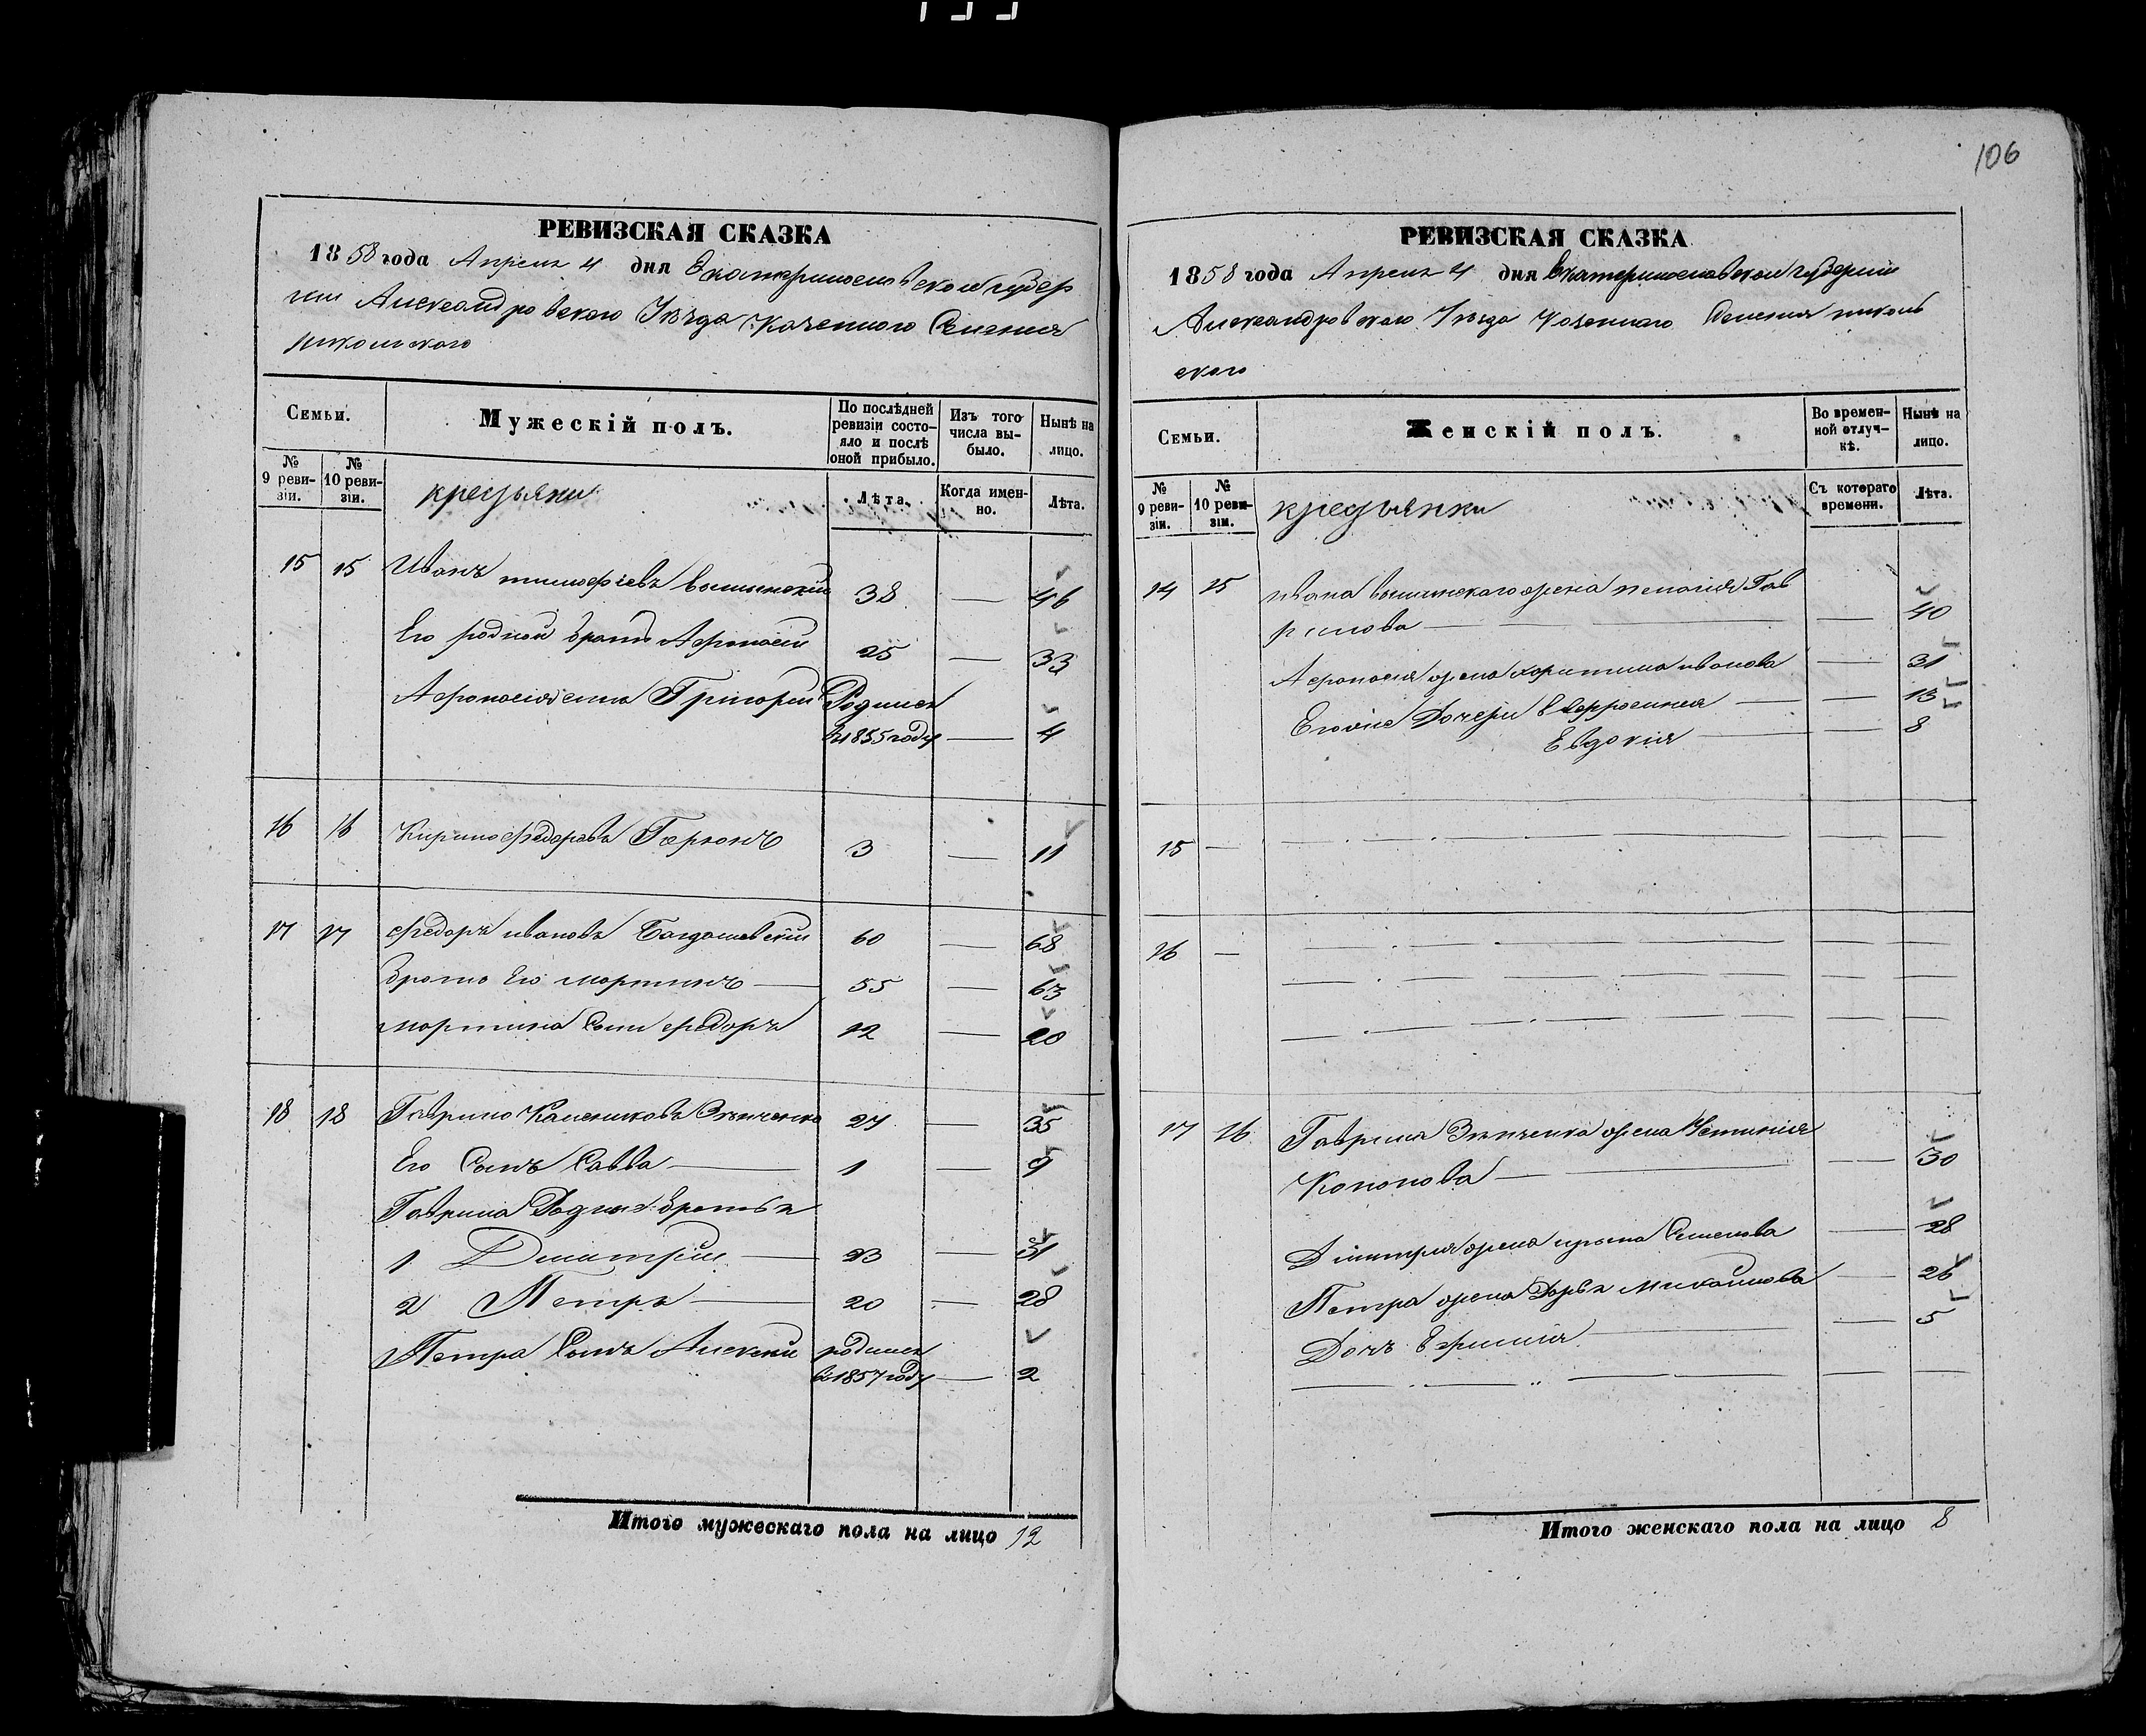 106
РЕВИЗСКАЯ СКАЗКА
1858 года Апреля 4 дня Екатеринославской губер
нии Александровского Уезда Казенного Селения
Никольского
Семьи.
Мужескій полъ.
По послѣдней ревизіи состо-
яло и послѣ
оной прибыло.
Изъ того
числа вы-
было.
Нынѣ на
лицо.
№
9 реви-
зіи.
№
10 реви-
зіи.
крестьяни
Лѣта.
Когда имен-
но.
Лѣта.
15 15 Иванъ тимофѣевъ 38 — 46
Его родной братъ Афонасий 25 — 33
Афонасія сынъ Григорий Родился
въ 1855 году — 4
16 16 Кирило Федоровъ 3 — 11
17 17 Федоръ ивановъ 60 — 68
Братъ Его мартинъ — 55 — 63
мартина Сынъ федоръ 12 — 20
18 18 Гаврило 27 — 35
Его Сынъ Савва — 1 — 9
Гаврила Родные братья
1 Дмитрий — 23 — 31
2 Петръ — 20 — 28
Петра Сынъ Алексей родился
въ 1857 году — 2
Итого мужескаго пола на лицо 12
РЕВИЗСКАЯ СКАЗКА
1858 года Апреля 4 дня Екатеринославской губернии
Александровского Уезда Казенного Селения николь
ского
Семьи.
Женскій полъ.
Во времен-
ной отлуч-
кѣ.
Нынѣ на
лицо.
№
9 реви-
зіи.
№
10 реви-
зіи.
крестьянки
Съ котораго
времени.
Лѣта.
14 15 ивана жена Гав
рилова — — 40
Афонасия жена харитина иванова — 31
Его же Дочери Ефросиния — — 13
Евдокия — — 8
15 — — — —
16 — — — —
17 16 Гаврила жена Устиния
Кононова — — 30
Дмитрия жена ирына Семенова — 28
Петра жена Дарья Михайлова — 26
Дочь — — 5
Итого женскаго пола на лицо 8